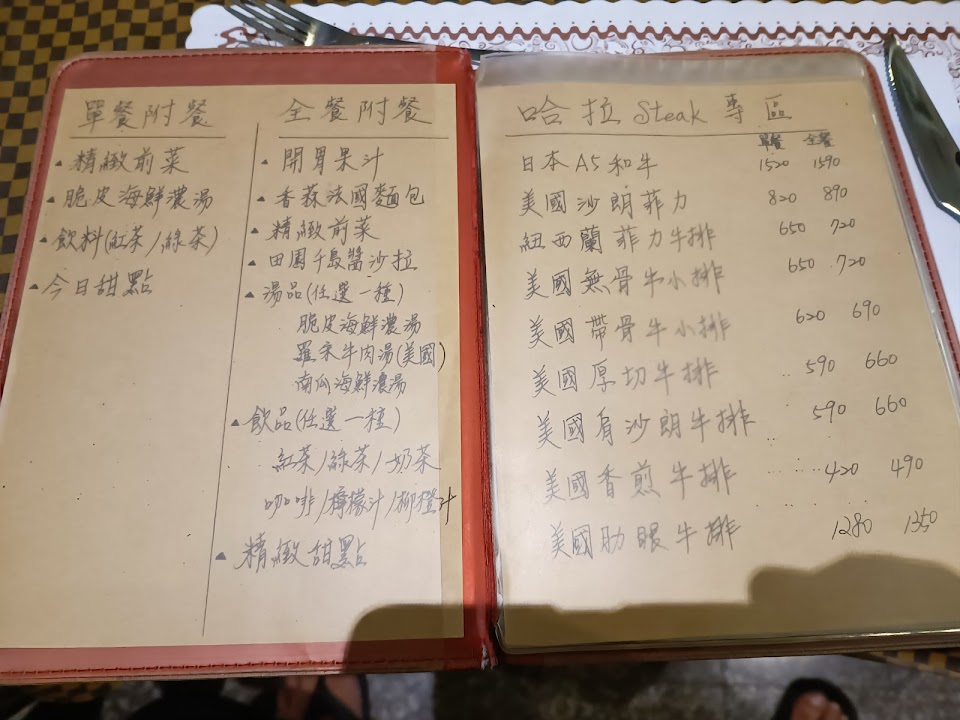 單餐附餐
▲精緻前菜
▲脆皮海鮮濃湯
▲飲料(紅茶/綠茶)
▲今日甜點
全餐附餐
▲開胃果汁
▲香蒜法國麵包
▲精緻前菜
▲田園千島醬沙拉
▲湯品(任選一種)
脆皮海鮮濃湯
羅宋牛肉湯(美國)
南瓜海鮮濃湯
▲飲品(任選一種)
紅茶/綠茶/奶茶
咖啡/檸檬汁/柳橙汁
▲精緻甜點
哈拉 Steak 專區
單餐 全餐
日本A5和牛 1520 1590
美國沙朗菲力 820 890
紐西蘭菲力牛排 650 720
美國無骨牛小排 650 720
美國帶骨牛小排 620 690
美國厚切牛排 590 660
美國肩沙朗牛排 590 660
美國香煎牛排 420 490
美國肋眼牛排 1280 1350